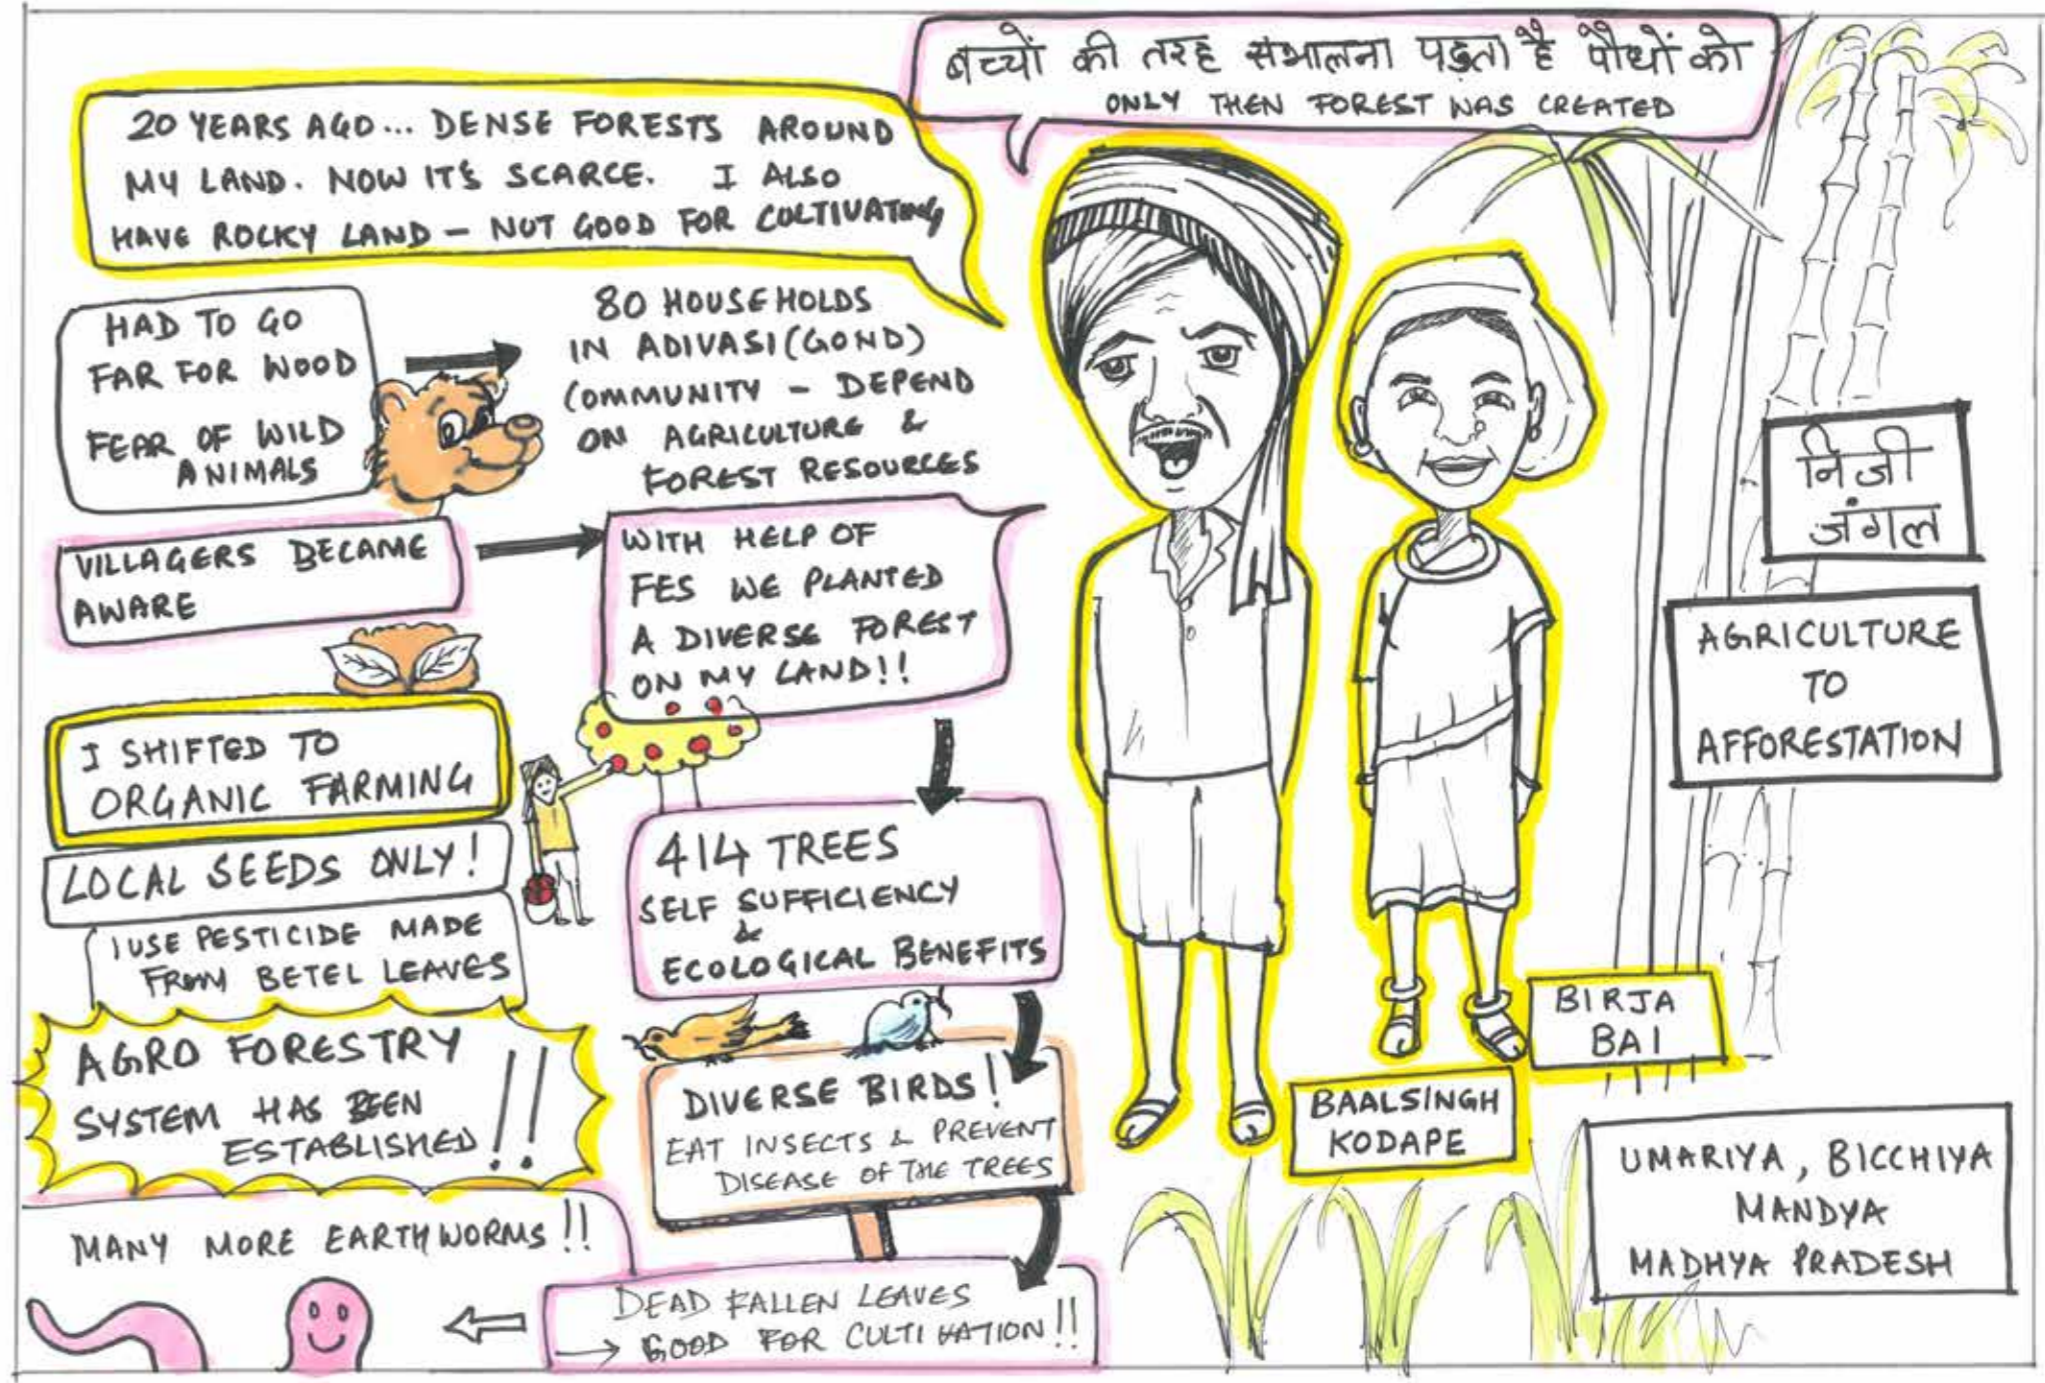 बच्चों की तरह संभालना पड़ता है पौधों को
ONLY THEN FOREST WAS CREATED
20 YEARS AGO... DENSE FORESTS AROUND
MY LAND. NOW IT'S SCARCE. I ALSO
HAVE ROCKY LAND - NOT GOOD FOR CULTIVATING
HAD TO GO
FAR FOR WOOD
FEAR OF WILD
ANIMALS
80 HOUSEHOLDS
IN ADIVASI (GOND)
COMMUNITY - DEPEND
ON AGRICULTURE &
FOREST RESOURCES
VILLAGERS BECAME
AWARE
WITH HELP OF
FES WE PLANTED
A DIVERSE FOREST
ON MY LAND!!
I SHIFTED TO
ORGANIC FARMING
LOCAL SEEDS ONLY!
I USE PESTICIDE MADE
FROM BETEL LEAVES
AGRO FORESTRY
SYSTEM HAS BEEN
ESTABLISHED!!
414 TREES
SELF SUFFICIENCY
&
ECOLOGICAL BENEFITS
DIVERSE BIRDS!
EAT INSECTS & PREVENT
DISEASE OF THE TREES
DEAD FALLEN LEAVES
→ GOOD FOR CULTIVATION!!
MANY MORE EARTHWORMS!!
निजी
जंगल
AGRICULTURE
TO
AFFORESTATION
BIRJA
BAI
BAALSINGH
KODAPE
UMARIYA, BICCHIYA
MANDYA
MADHYA PRADESH